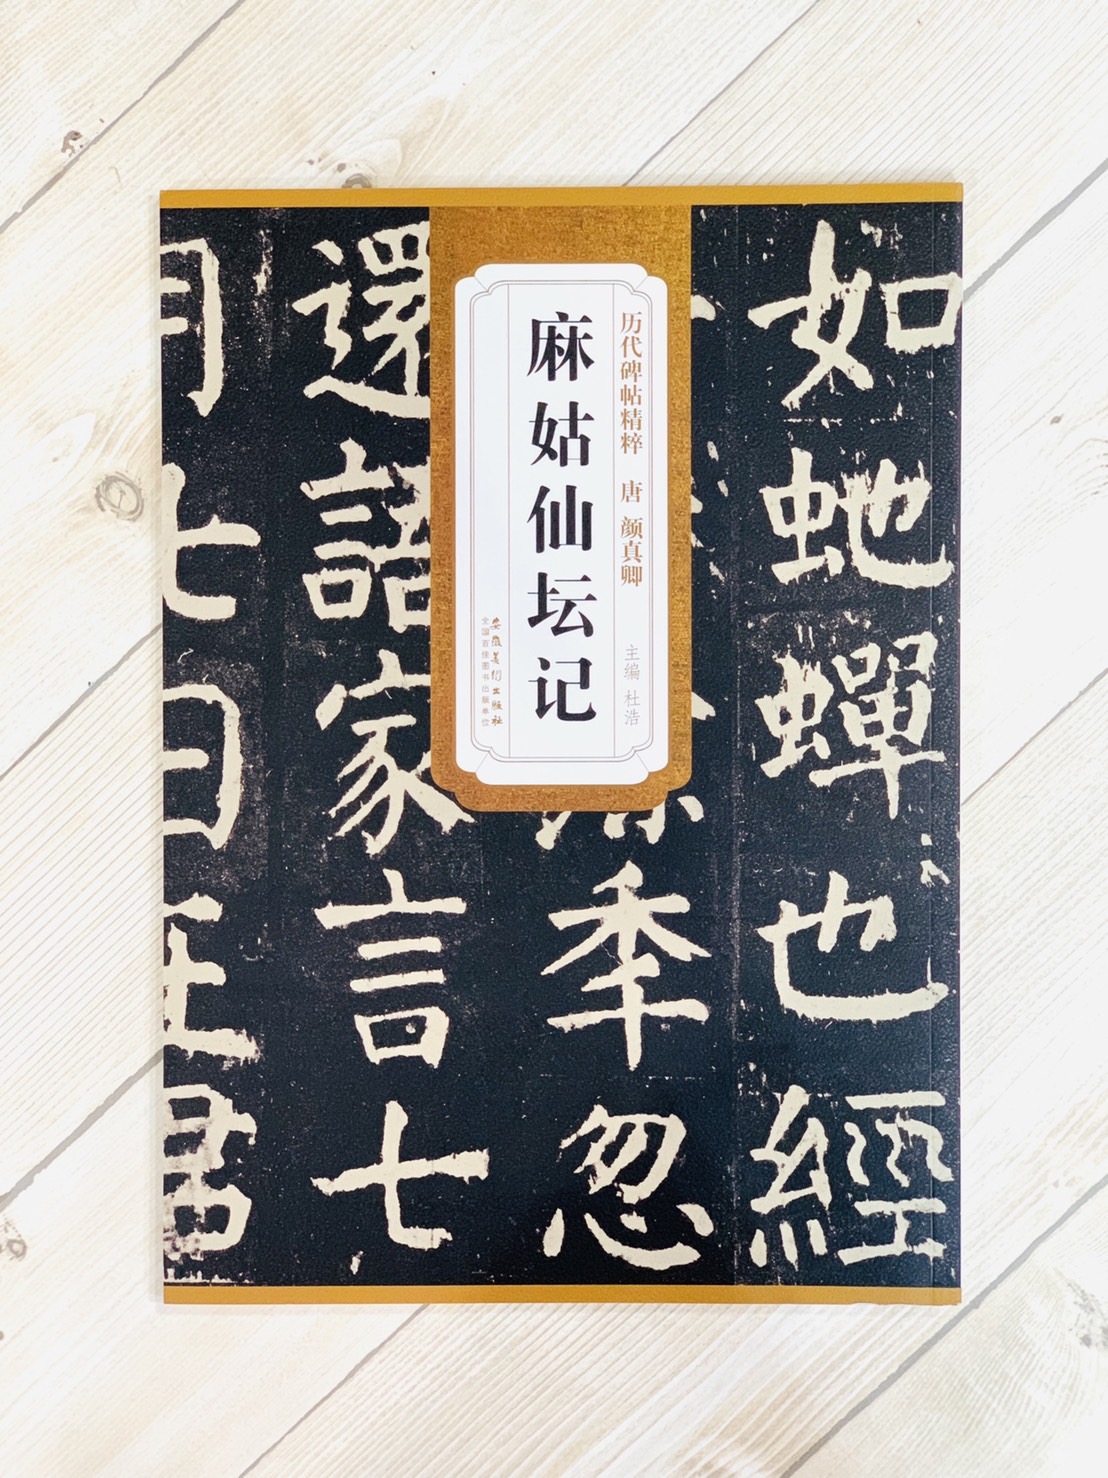 历代碑帖精粹 唐 颜真卿
主编 杜浩
麻姑仙坛记
安徽美術出版社
全国百佳图书出版单位
如蛇蟬也經
秊忽
還語家言七
月七日王君